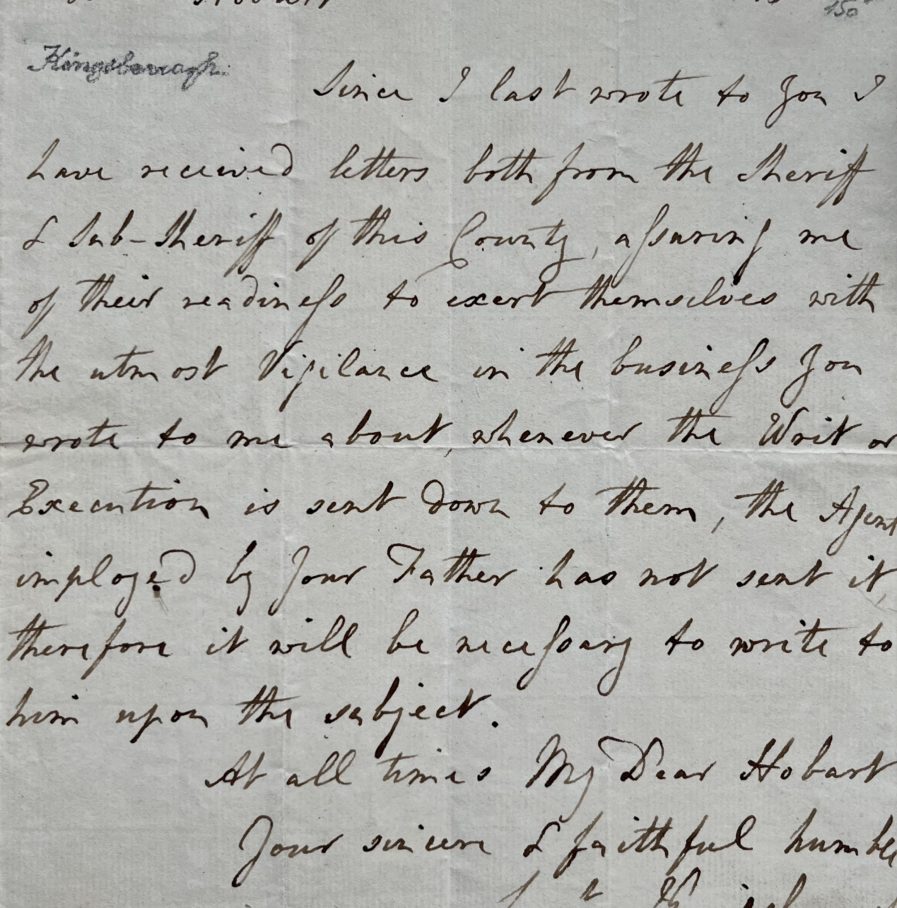 150
Kingsborough.
Since I last wrote to You I
have received letters both from the Sheriff
& Sub-Sheriff of this County, aſsuring me
of their readineſs to exert themselves with
the utmost Vigilance in the busineſs You
wrote to me about, whenever the Writ or
Execution is sent down to them, the Agent
imployed by Your Father has not sent it,
therefore it will be neceſsary to write to
him upon the subject.
At all times My Dear Hobart
Your sincere & faithful humble